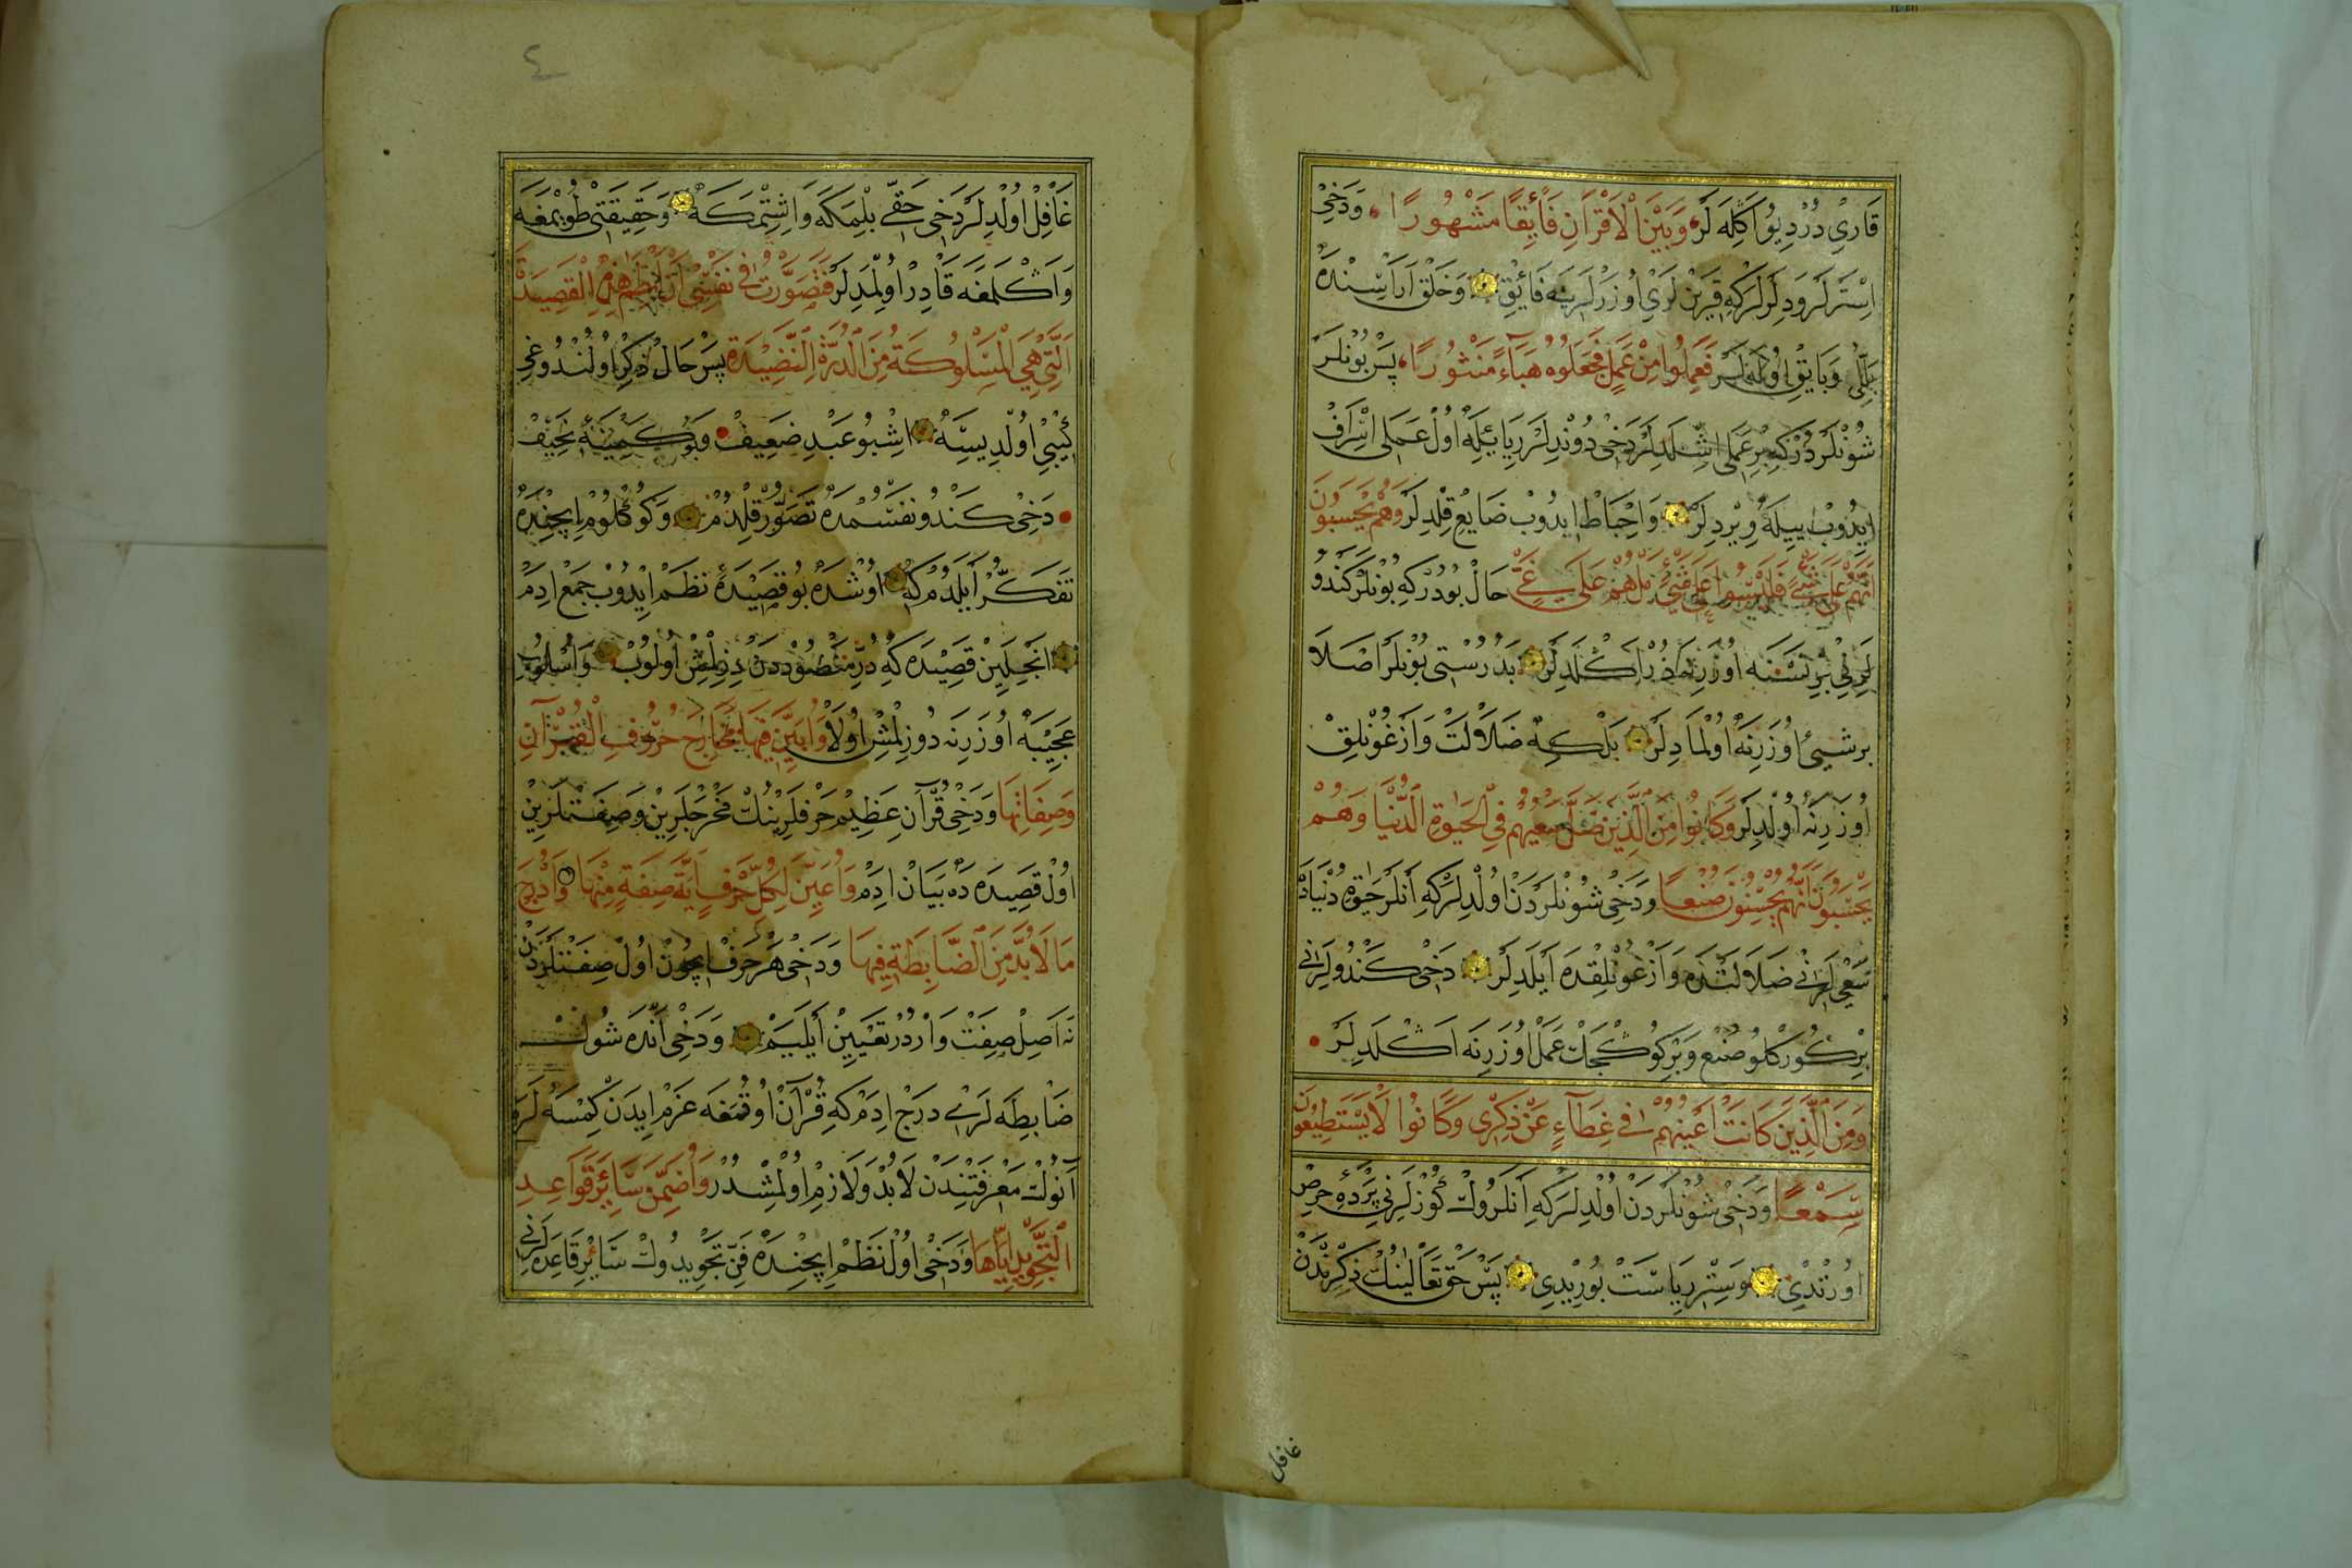 قَارِي دُرْ دِيُو اَكِلَه لَرْ وَبَيْنَ الْاَقْرَانِ فَائِقًا مَشْهُورًا وَدَخِى
اِسْتَرلَرْ وَدِلَرلَرْكِه قَرِينْ لَرِي اُوزَرلَرِينَه فَائِقْ وَخَلْقْ اَرَاسِنْدَه
بَلِّلُى وَبَايِقْ اُولَه لَرْ فَعَمِلُوا مِنْ عَمَلٍ فَجَعَلُوهُ هَبَآءً مَنْثُورًا پَسْ بُونْلَرْ
شُونْلَرْدُرْكِه بِرْ عَمَلِى اِشْلَدِلَرْ دَخِى دُونْدِلَرْ رِيَا يِيلَه اُولْ عَمَلِى اِسْرَافْ
اِيدُوبْ يِيلَه وِيرْدِلَرْ وَاِحْبَاطْ اِيدُوبْ ضَايِعْ قِلْدِلَرْ وَهُمْ يَحْسَبُونَ
اَنَّهُمْ عَلَى شَيْءٍ فَلَيْسُوا عَلَى شَيْءٍ بَلْ هُمْ عَلَى غَيٍّ حَالْ بُودُرْكِه بُونْلَرْ كَنْدُو
لَرِنِي بِرْ نَسْنَه اُوزَرِنَه دُرْ اَكْلَدِلَرْ بَدُرُسْتِى بُونْلَرْ اَصْلَا
بر شيئ اُوزَرِنَه اُولْمَادِلَرْ بَلْكِه ضَلَالَتْ وَاَزْغُونْلِقْ
اُوزَرِنَه اُولْدِلَرْ وَكَانُوا مِنَ الَّذِينَ ضَلَّ سَعْيُهُمْ فِي الْحَيٰوةِ الدُّنْيَا وَهُمْ
يَحْسَبُونَ اَنَّهُمْ يُحْسِنُونَ صُنْعًا وَدَخِى شُونْلَرْدَنْ اُولْدِلَرْكِه اَنْلَرْ حَيٰوةِ دُنْيَادَه
سَعْىِ لَرِنِي ضَلَالَتْدَه وَاَزْغُونْلِقْدَه اَيْلَدِلَرْ دَخِى كَنْدُولَرِنِي
بِرْ كُورْكْلُو صُنْعْ وَبِرْ كُوكْجَكْ عَمَلْ اُوزَرِنَه اَكْلَدِلَرْ
وَمِنَ الَّذِينَ كَانَتْ اَعْيُنُهُمْ فِي غِطَآءٍ عَنْ ذِكْرِى وَكَانُوا لَا يَسْتَطِيعُونَ
سَمْعًا وَدَخِى شُونْلَرْدَنْ اُولْدِلَرْكِه اَنْلَرُوكْ كُوزْلَرِنِي پَرْدَهِ حِرْصْ
اُورْتْدِى وَسِتْرِ رِيَاسَتْ بُورِيدِى پَسْ حَقْ تَعَالٰىنُكْ ذِكْرِنْدَنْ
غافل
٤
غَافِلْ اُولْدِلَرْ دَخِى حَقِّى بِلْمَكَه وَاِشِتْمَكَه وَحَقِيقَتِى طُويْمَغَه
وَاَكْلَمَغَه قَادِرْ اُولْمَدِلَرْ فَتَصَوَّرْتُ فِي نَفْسِى اَنْ اَنْظِمَ هٰذِهِ الْقَصِيدَةَ
الَّتِى هِىَ الْمَسْلُوكَةُ مِنَ الدُّرَّةِ النَّضِيدَةِ پَسْ حَالْ ذِكْرْ اُولُنْدُوغِى
كِيبِى اُولْدِيسَه اِشْبُو عَبْدِ ضَعِيفْ وَبُو كَمِينَهِ نَحِيفْ
دَخِى كَنْدُو نَفْسُمْدَه تَصَوُّرْ قِلْدُمْ وَكُوكْلُومْ اِيچِنْدَه
تَفَكُّرْ اَيْلَدُمْكِه اُوشْدَه بُو قَصِيدَهِ نَظْمْ اِيدُوبْ جَمْعْ اِدَمْ
اَنْجِلَيِنْ قَصِيدَه كِه دُرِّ مَنْضُودْدَنْ دِزِلْمِشْ اُولُوبْ وَاُسْلُوبِ
عَجِيبَه اُوزَرِنَه دُوزِلْمِشْ اُولَا وَاُبَيِّنَ فِيهَا مَخَارِجَ حُرُوفِ الْقُرْآنِ
وَصِفَاتِهَا وَدَخِى قُرْآنِ عَظِيمْ حَرْفْلَرِينُكْ مَخْرَجْلَرِينْ وَصِفَتْلَرِينْ
اُولْ قَصِيدَه دَه بَيَانْ اِدَمْ وَاُعَيِّنَ لِكُلِّ حَرْفٍ اَيَّةَ صِفَةٍ مِنْهَا وَاُدْرِجَ
مَا لَابُدَّ مِنَ الضَّابِطَةِ فِيهَا وَدَخِى هَرْ حَرْفْ اِيچُونْ اُولْ صِفَتْلَرْدَنْ
نَه اَصِلْ صِفَتْ وَارْدُرْ تَعْيِينْ اَيْلَيَمْ وَدَخِى اَنْدَه شُولْ
ضَابِطَه لَرِي دَرْجْ اِدَمْكِه قُرْآنْ اُوقُمَغَه عَزْمْ اِيدَنْ كِمْسَه لَرَه
اَنُوكْ مَعْرِفَتِنْدَنْ لَابُدْ وَلَازِمْ اُولْمِشْدُرْ وَاُضَمِّنَ سَائِرَ قَوَاعِدِ
التَّجْوِيدِ اِيَّاهَا وَدَخِى اُولْ نَظْمْ اِيچِنْدَه فَنِّ تَجْوِيدُوكْ سَائِرْ قَاعِدَه لَرِنِي